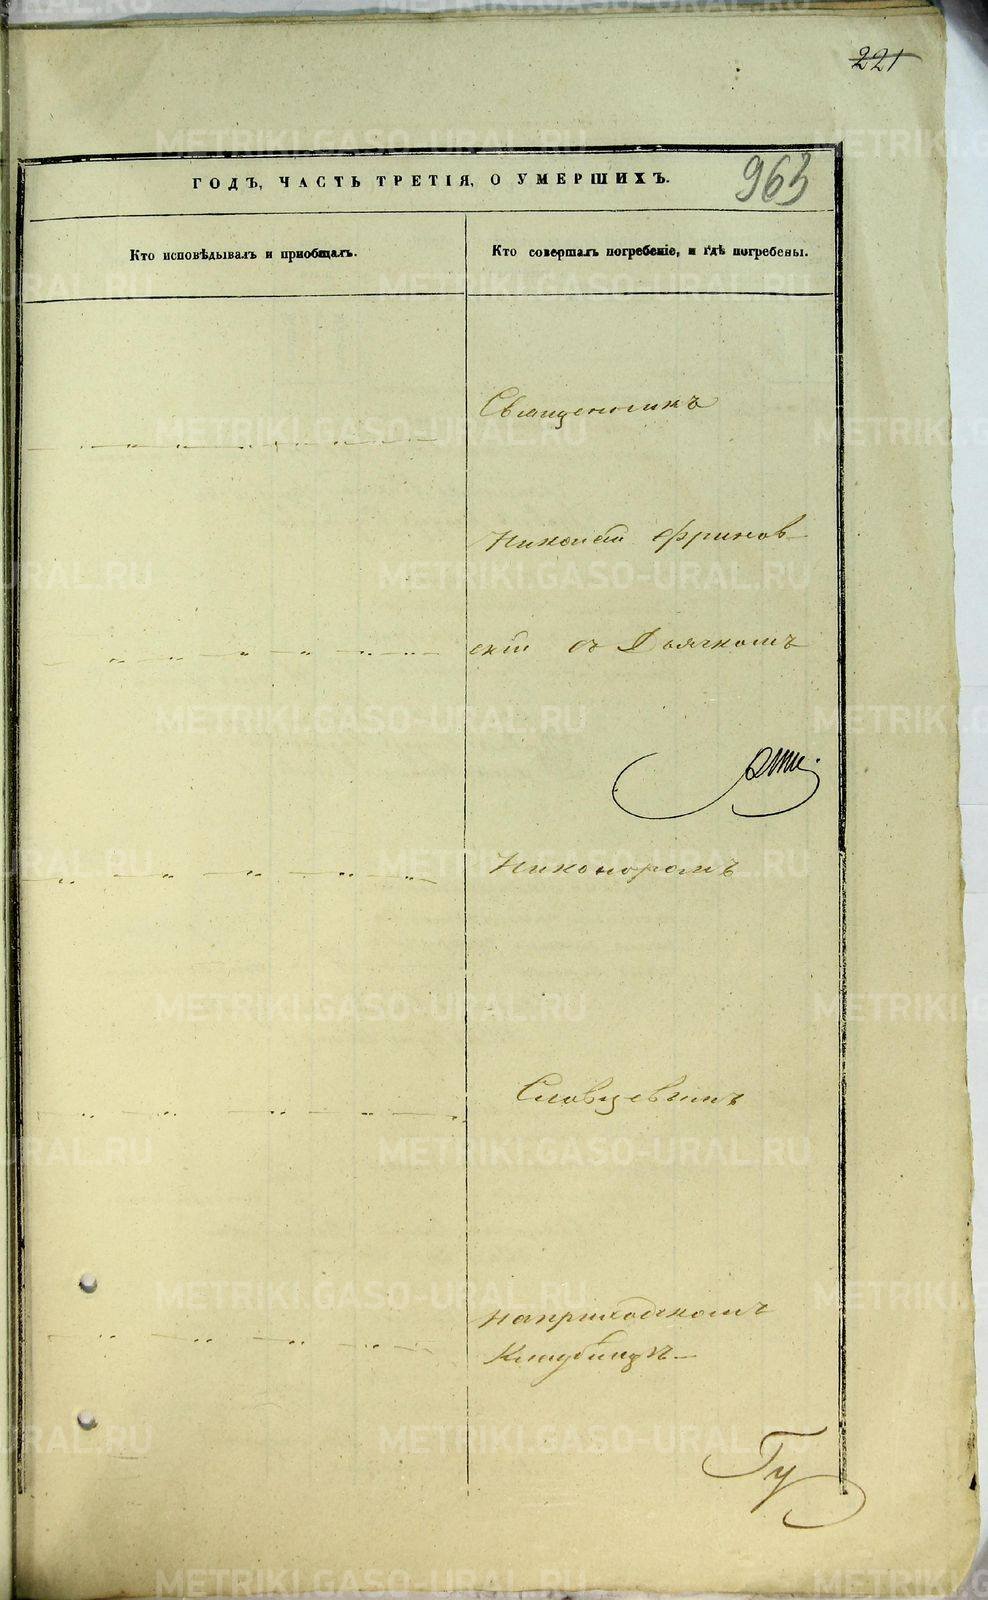 221
963
ГОДЪ, ЧАСТЬ ТРЕТІЯ, О УМЕРШИХЪ.
Кто исповѣдывалъ и пріобщалъ.
Кто совершалъ погребеніе, и гдѣ погребены.
Священникъ
Николай Фринов
скій съ Дьячкомъ
Никоноромъ
Словцевымъ
наприходскомъ
Кладбищѣ
Гу
METRIKI.GASO-URAL.RU